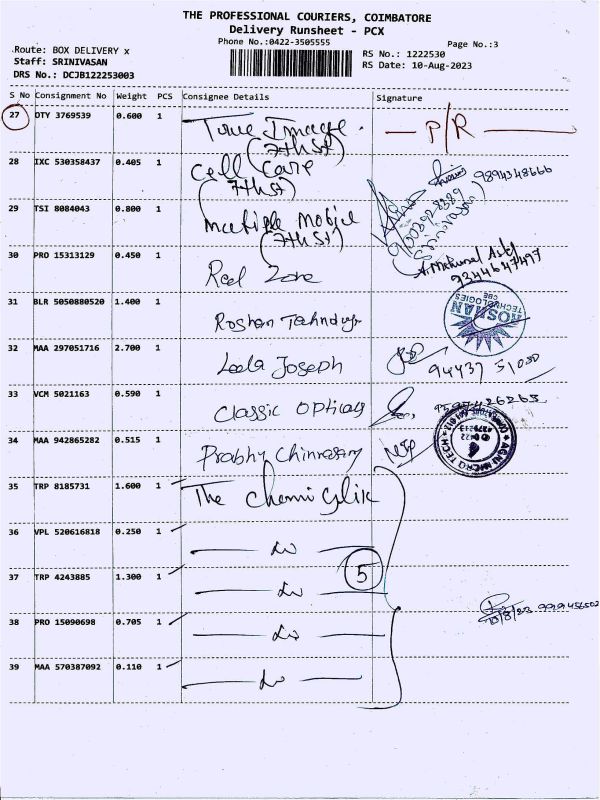 THE PROFESSIONAL COURIERS, COIMBATORE
Delivery Runsheet - PCX
Phone No.:0422-3505555
Page No.:3
Route: BOX DELIVERY x
Staff: SRINIVASAN
DRS No.: DCJB122253003
RS No.: 1222530
RS Date: 10-Aug-2023
S No Consignment No Weight PCS Consignee Details Signature
27 DTY 3769539 0.600 1 True Image (7th St) P/R
28 IXC 530358437 0.405 1 Cell Care (7th St) 9894348666
29 TSI 8084043 0.800 1 Multiple Mobile (7th St) (Srinivasan)
30 PRO 15313129 0.450 1 Red Zone A. Mohamed 9344647497
31 BLR 5050880520 1.400 1 Roshan Technology ROSHAN TECHNOLOGIES CBE
32 MAA 297051716 2.700 1 Leela Joseph 94437 51030
33 VCM 5021163 0.590 1 Classic Opticals
34 MAA 942865282 0.515 1 Prabhu Chinnasamy AGNI MICRO TECH COIMBATORE 641 012 0422 4379213
35 TRP 8185731 1.600 1 The Chemi
36 VPL 520616818 0.250 1 — Do —
37 TRP 4243885 1.300 1 — Do — 5
38 PRO 15090698 0.705 1 — Do — 10/8/23
39 MAA 570387092 0.110 1 — Do —